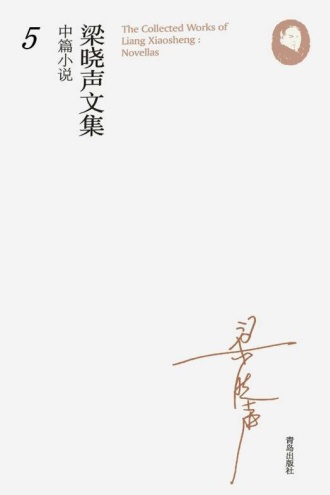 5
中篇小说
梁晓声文集
The Collected Works of
Liang Xiaosheng :
Novellas
梁晓声
青岛出版社